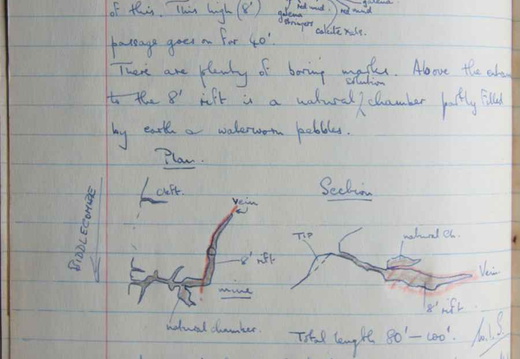 of this. This high (8')
galena
red mud
red mud
galena
stringers
calcite xtals.
passage goes on for 40'.
There are plenty of boring marks. Above the
solution
to the 8' rift is a natural chamber partly filled
by earth & waterworn pebbles.
Plan.
Section
Cleft.
BIDDLECOMBE
Vein
8' rift
mine
natural chamber.
Tip
natural Ch.
Vein
8' rift.
Total length 80' - 100'.